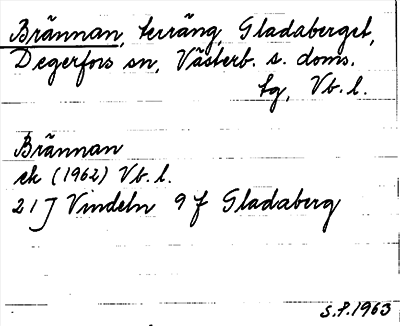 Brännan, terräng, Gladaberget,
Degerfors sn, Västerb. s. doms.
tg, Vb. l.
Brännan
ek (1962) Vb. l.
21 J Vindeln 9 f Gladaberg
S.P. 1963